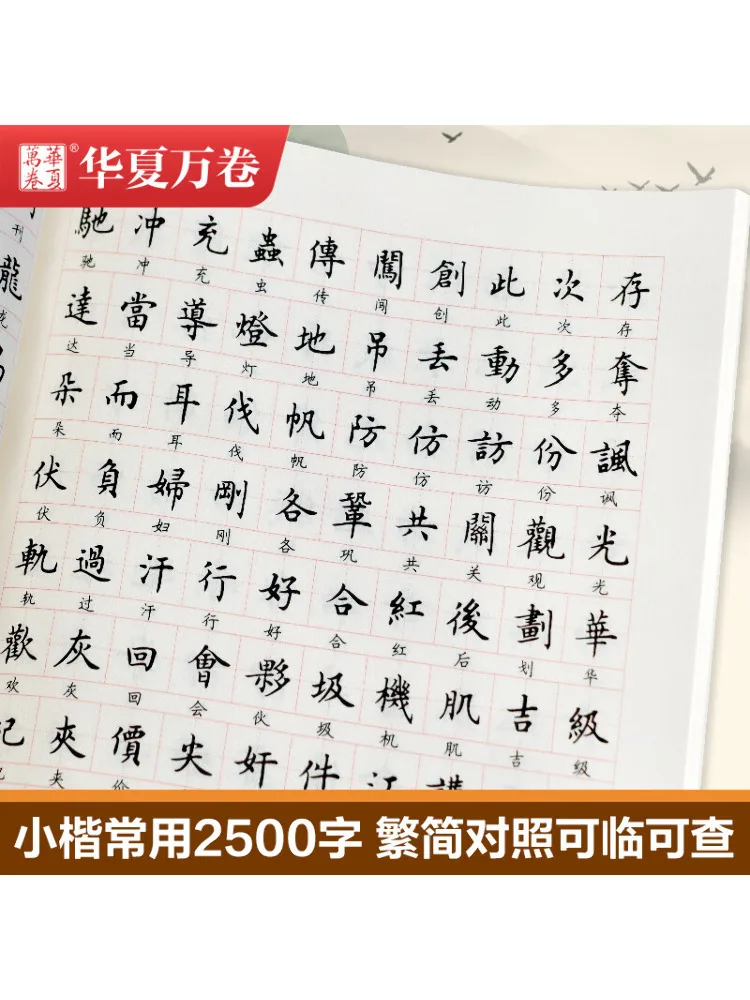 華夏萬卷® 华夏万卷
馳 冲 充 蟲 傳 闖 創 此 次 存
驰 冲 充 虫 传 闯 创 此 次 存
達 當 導 燈 地 吊 丢 動 多 奪
达 当 导 灯 地 吊 丢 动 多 夺
朵 而 耳 伐 帆 防 仿 訪 份 諷
朵 而 耳 伐 帆 防 仿 访 份 讽
伏 負 婦 剛 各 鞏 共 關 觀 光
伏 负 妇 刚 各 巩 共 关 观 光
軌 過 汗 行 好 合 紅 後 劃 華
轨 过 汗 行 好 合 红 后 划 华
歡 灰 回 會 夥 圾 機 肌 吉 級
欢 灰 回 会 伙 圾 机 肌 吉 级
夾 價 尖 奸 件 江
夹 价
刊
龍
龙
小楷常用2500字 繁简对照可临可查